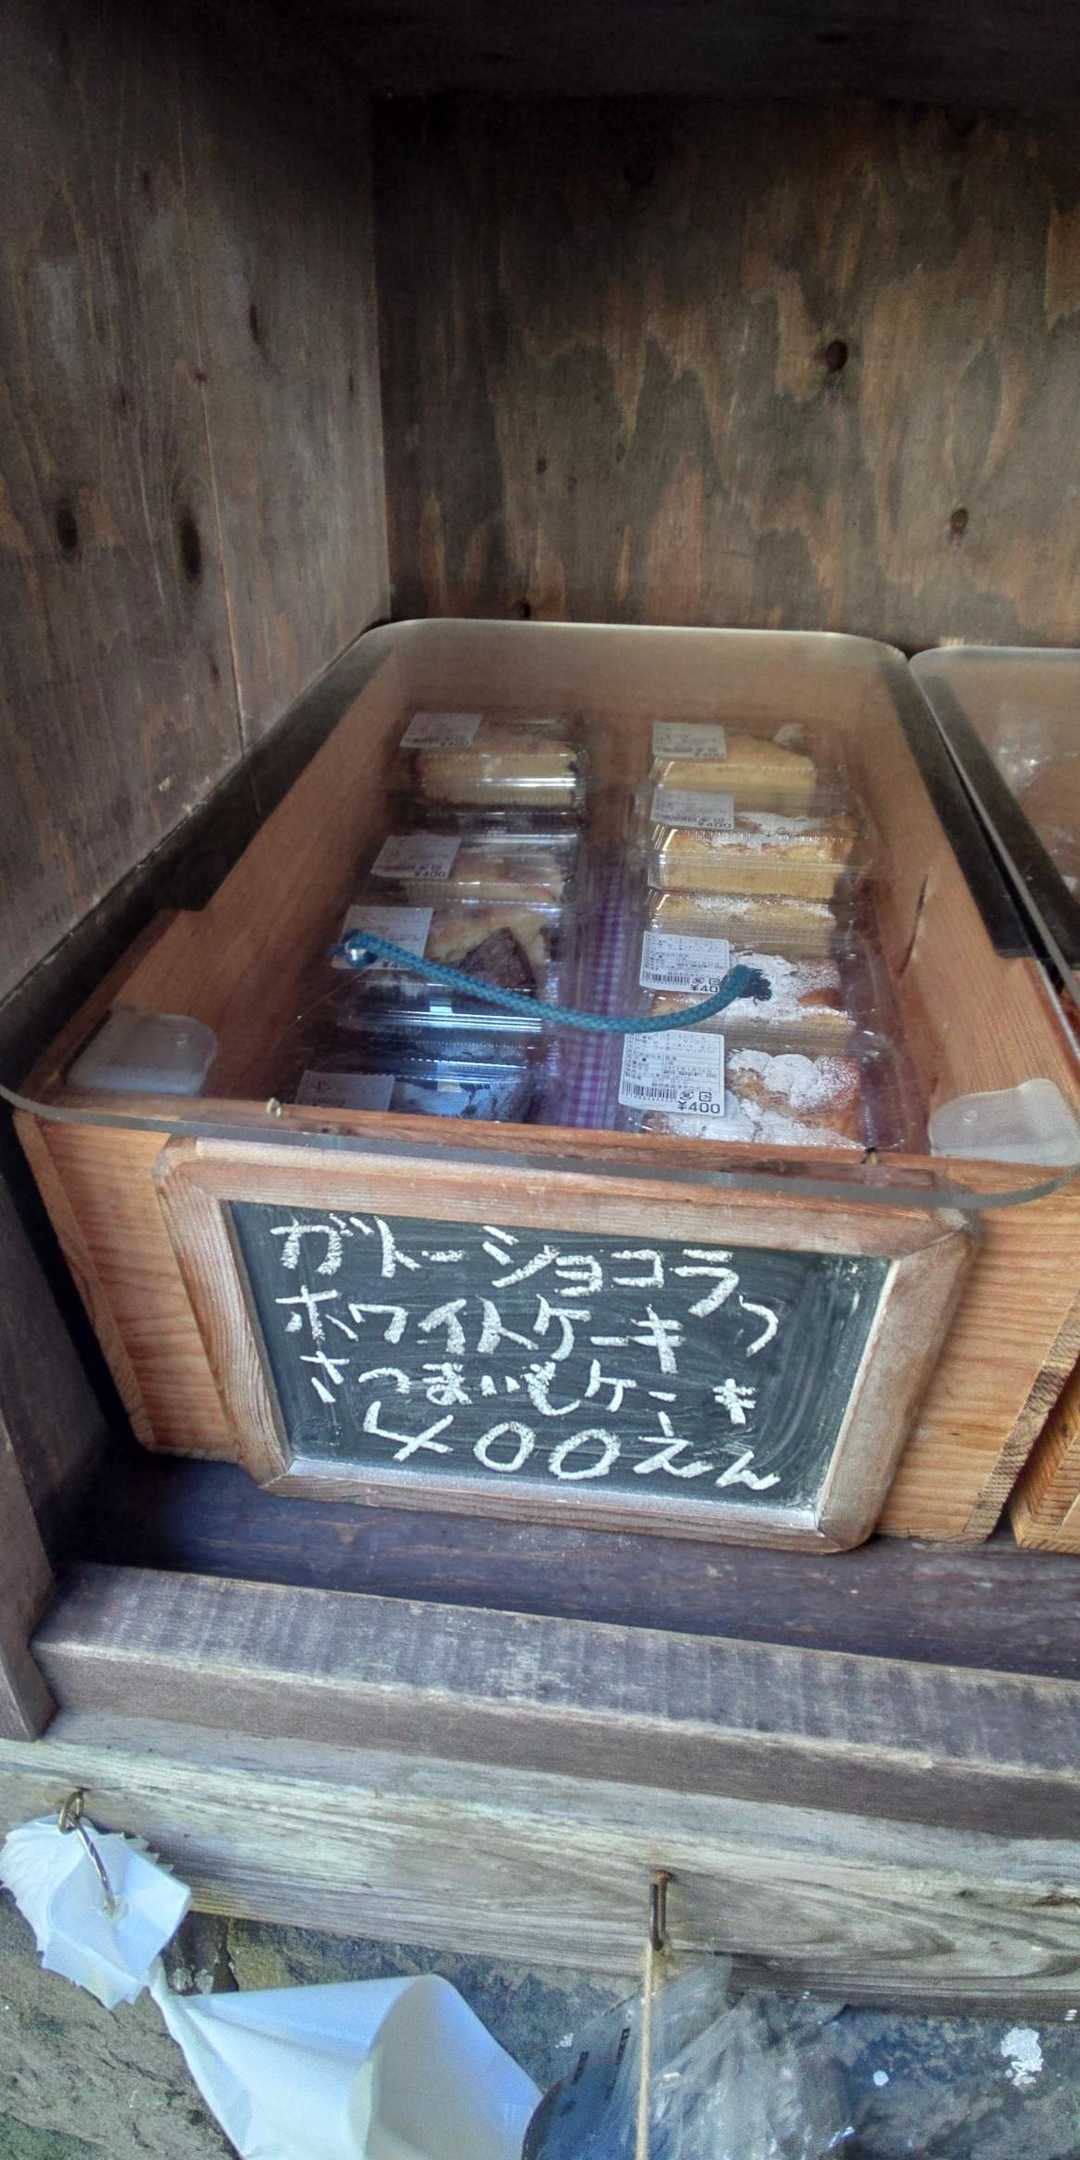 ガトーショコラっ
ホワイトケーキ
さつまいもケーキ
400えん
¥400
¥400
¥400